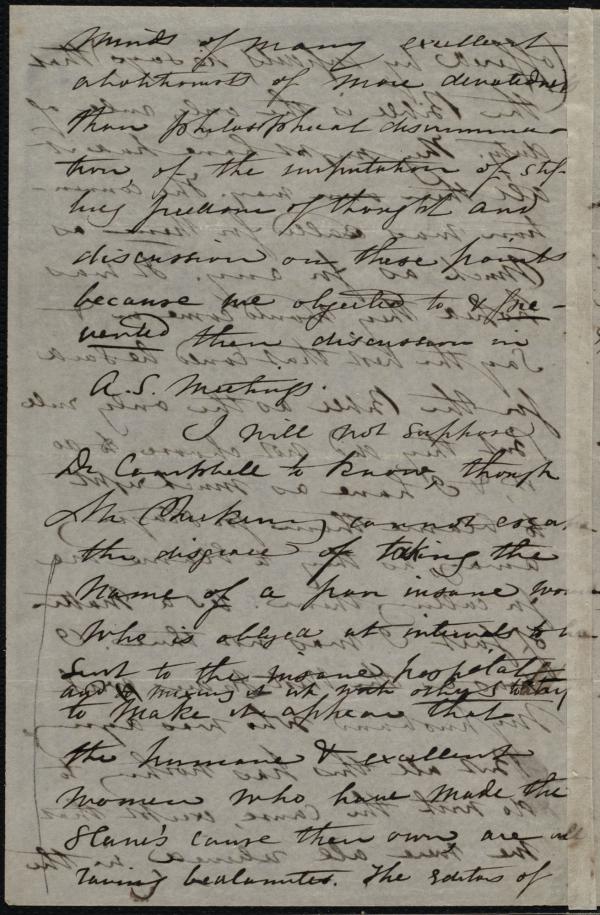 minds of many excellent
abolitionists of more devotedness
than philosophical discrimina-
tion of the imputation of stif-
ling freedom of thought and
discussion on these points
because we objected to & pre-
vented their discussion in
A.S. Meetings.
I will not suppose
Dr Campbell to know, though
Mr cannot escape
the disgrace of taking the
name of a poor insane woman
who is obliged at intervals to be
sent to the insane hospital
and mixing it up with other
to make it appear that
the humane & excellent
women who have made the
Slave's cause their own are all
raving bedlamites. The Editors of